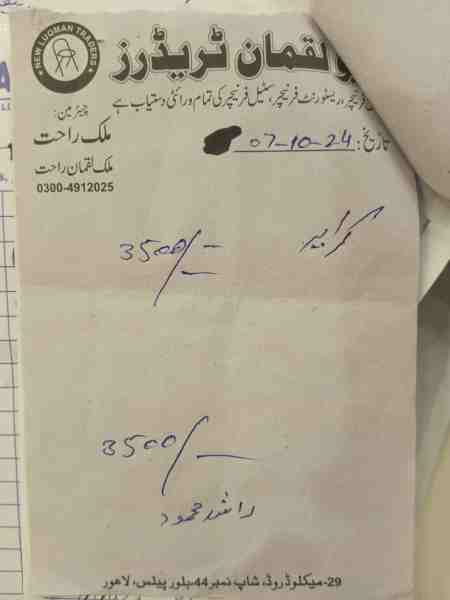 NEW LUQMAN TRADERS
لقمان ٹریڈرز
فرنیچر، ریسٹورنٹ فرنیچر، سٹیل فرنیچر کی تمام ورائٹی دستیاب ہے
چیئرمین:
ملک راحت
ملک لقمان راحت
0300-4912025
تاریخ: 07-10-24
کرایہ 3500/-
3500/-
راشد محمود
29-میکلوڈ روڈ، شاپ نمبر 44-بلور پیلس، لاہور